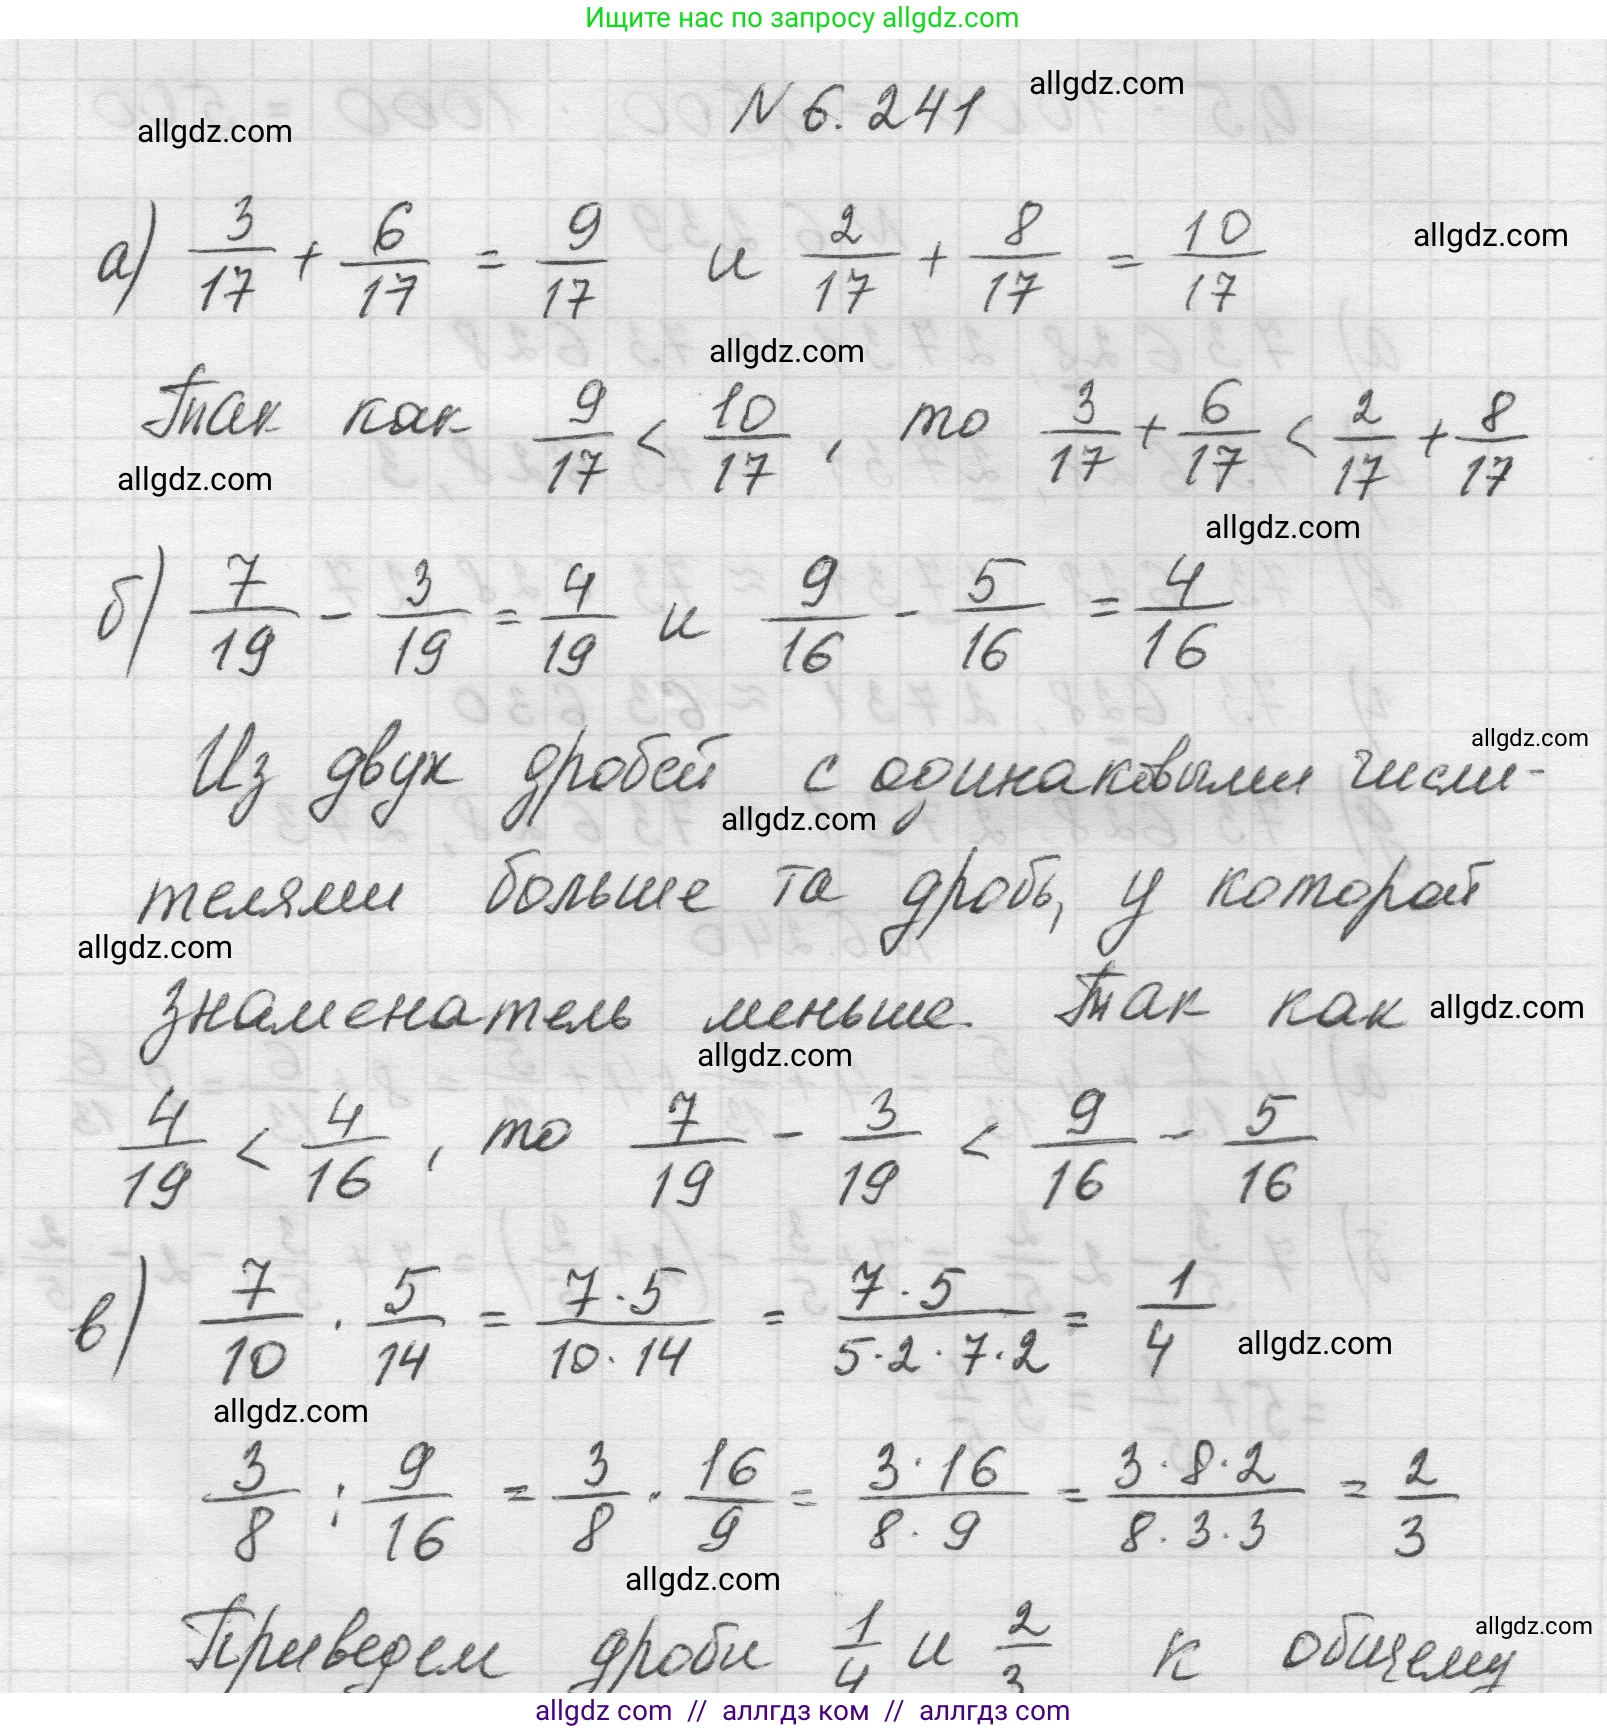 Ищите нас по запросу allgdz.com
N 6.241 allgdz.com
allgdz.com
а) 3/17 + 6/17 = 9/17 и 2/17 + 8/17 = 10/17 allgdz.com
allgdz.com
Так как 9/17 < 10/17, то 3/17 + 6/17 < 2/17 + 8/17
allgdz.com
allgdz.com
б) 7/19 - 3/19 = 4/19 и 9/16 - 5/16 = 4/16
allgdz.com
Из двух дробей с одинаковыми числи-
allgdz.com
телями больше та дробь, у которой
allgdz.com
знаменатель меньше. Так как allgdz.com
allgdz.com
4/19 < 4/16, то 7/19 - 3/19 < 9/16 - 5/16
в) 7/10 · 5/14 = 7·5/10·14 = 7·5/5·2·7·2 = 1/4 allgdz.com
allgdz.com
3/8 : 9/16 = 3/8 · 16/9 = 3·16/8·9 = 3·8·2/8·3·3 = 2/3
allgdz.com
Приведем дроби 1/4 и 2/3 к общему allgdz.com
allgdz.com // аллгдз ком // аллгдз.com